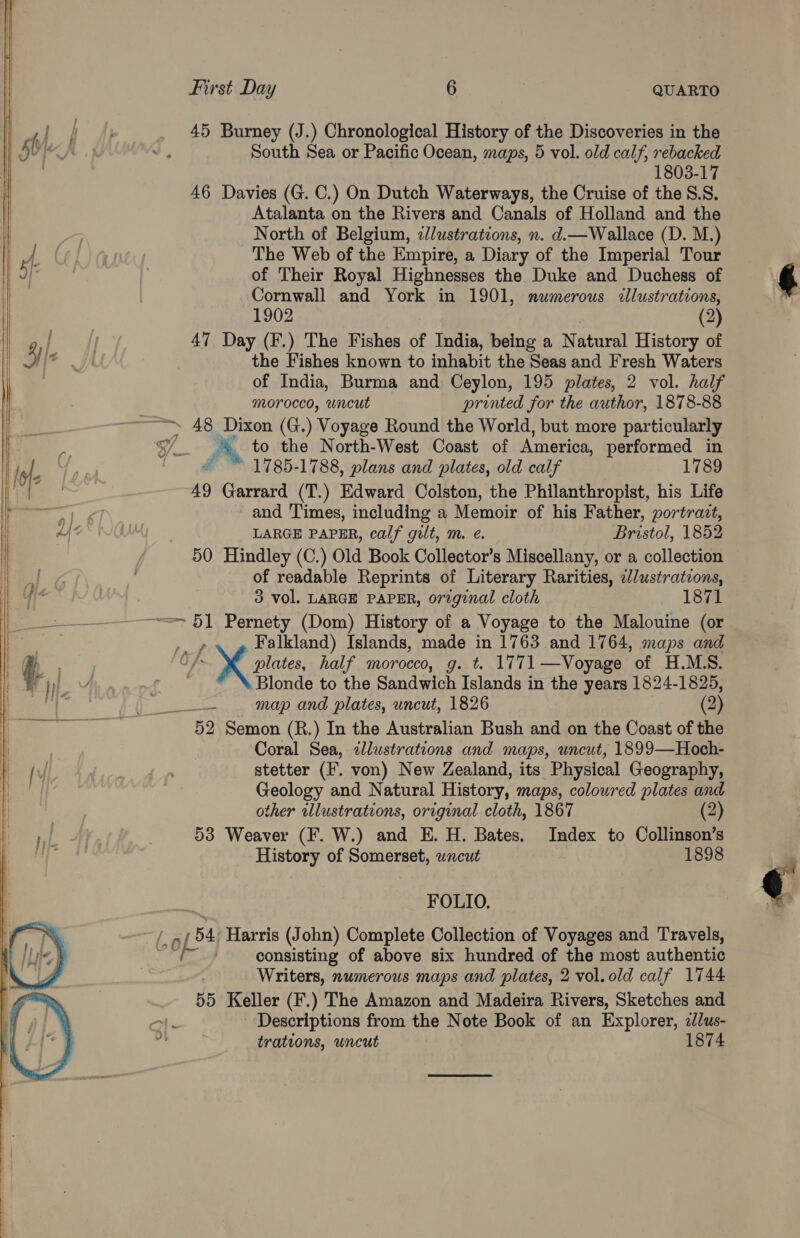 First Day 6 QUARTO
45 Burney (J.) Chronological History of the Discoveries in the
South Sea or Pacific Ocean, maps, 5 vol. old calf, rebacked
1803-17
46 Davies (G. C.) On Dutch Waterways, the Cruise of the S.S.
Atalanta on the Rivers and Canals of Holland and the
North of Belgium, illustrations, n. d.—Wallace (D. M.)
The Web of the Empire, a Diary of the Imperial Tour
of Their Royal Highnesses the Duke and Duchess of
Cornwall and York in 1901, numerous illustrations,
1902 (2)
47 Day (F.) The Fishes of India, being a Natural History of
the Fishes known to inhabit the Seas and Fresh Waters
of India, Burma and Ceylon, 195 plates, 2 vol. half
morocco, uncut printed for the author, 1878-88
48 Dixon (G.) Voyage Round the World, but more particularly
to the North-West Coast of America, performed in
1785-1788, plans and plates, old calf 1789
49 Garrard (T.) Edward Colston, the Philanthropist, his Life
and Times, including a Memoir of his Father, portrait,
LARGE PAPER, calf gilt, m. e. Bristol, 1852
50 Hindley (C.) Old Book Collector's Miscellany, or a collection
of readable Reprints of Literary Rarities, illustrations,
3 vol. LARGE PAPER, original cloth 1871
51 Pernety (Dom) History of a Voyage to the Malouine (or
Falkland) Islands, made in 1763 and 1764, maps and
plates, half morocco, g. t. 1771—Voyage of H.M.S.
Blonde to the Sandwich Islands in the years 1824-1825,
map and plates, uncut, 1826 (2)
52 Semon (R.) In the Australian Bush and on the Coast of the
Coral Sea, illustrations and maps, uncut, 1899—Hoch-
stetter (F. von) New Zealand, its Physical Geography,
Geology and Natural History, maps, coloured plates and
other illustrations, original cloth, 1867 (2)
53 Weaver (F. W.) and E. H. Bates. Index to Collinson's
History of Somerset, uncut 1898
FOLIO.
54 Harris (John) Complete Collection of Voyages and Travels,
consisting of above six hundred of the most authentic
Writers, numerous maps and plates, 2 vol. old calf 1744
55 Keller (F.) The Amazon and Madeira Rivers, Sketches and
Descriptions from the Note Book of an Explorer, illus-
trations, uncut 1874